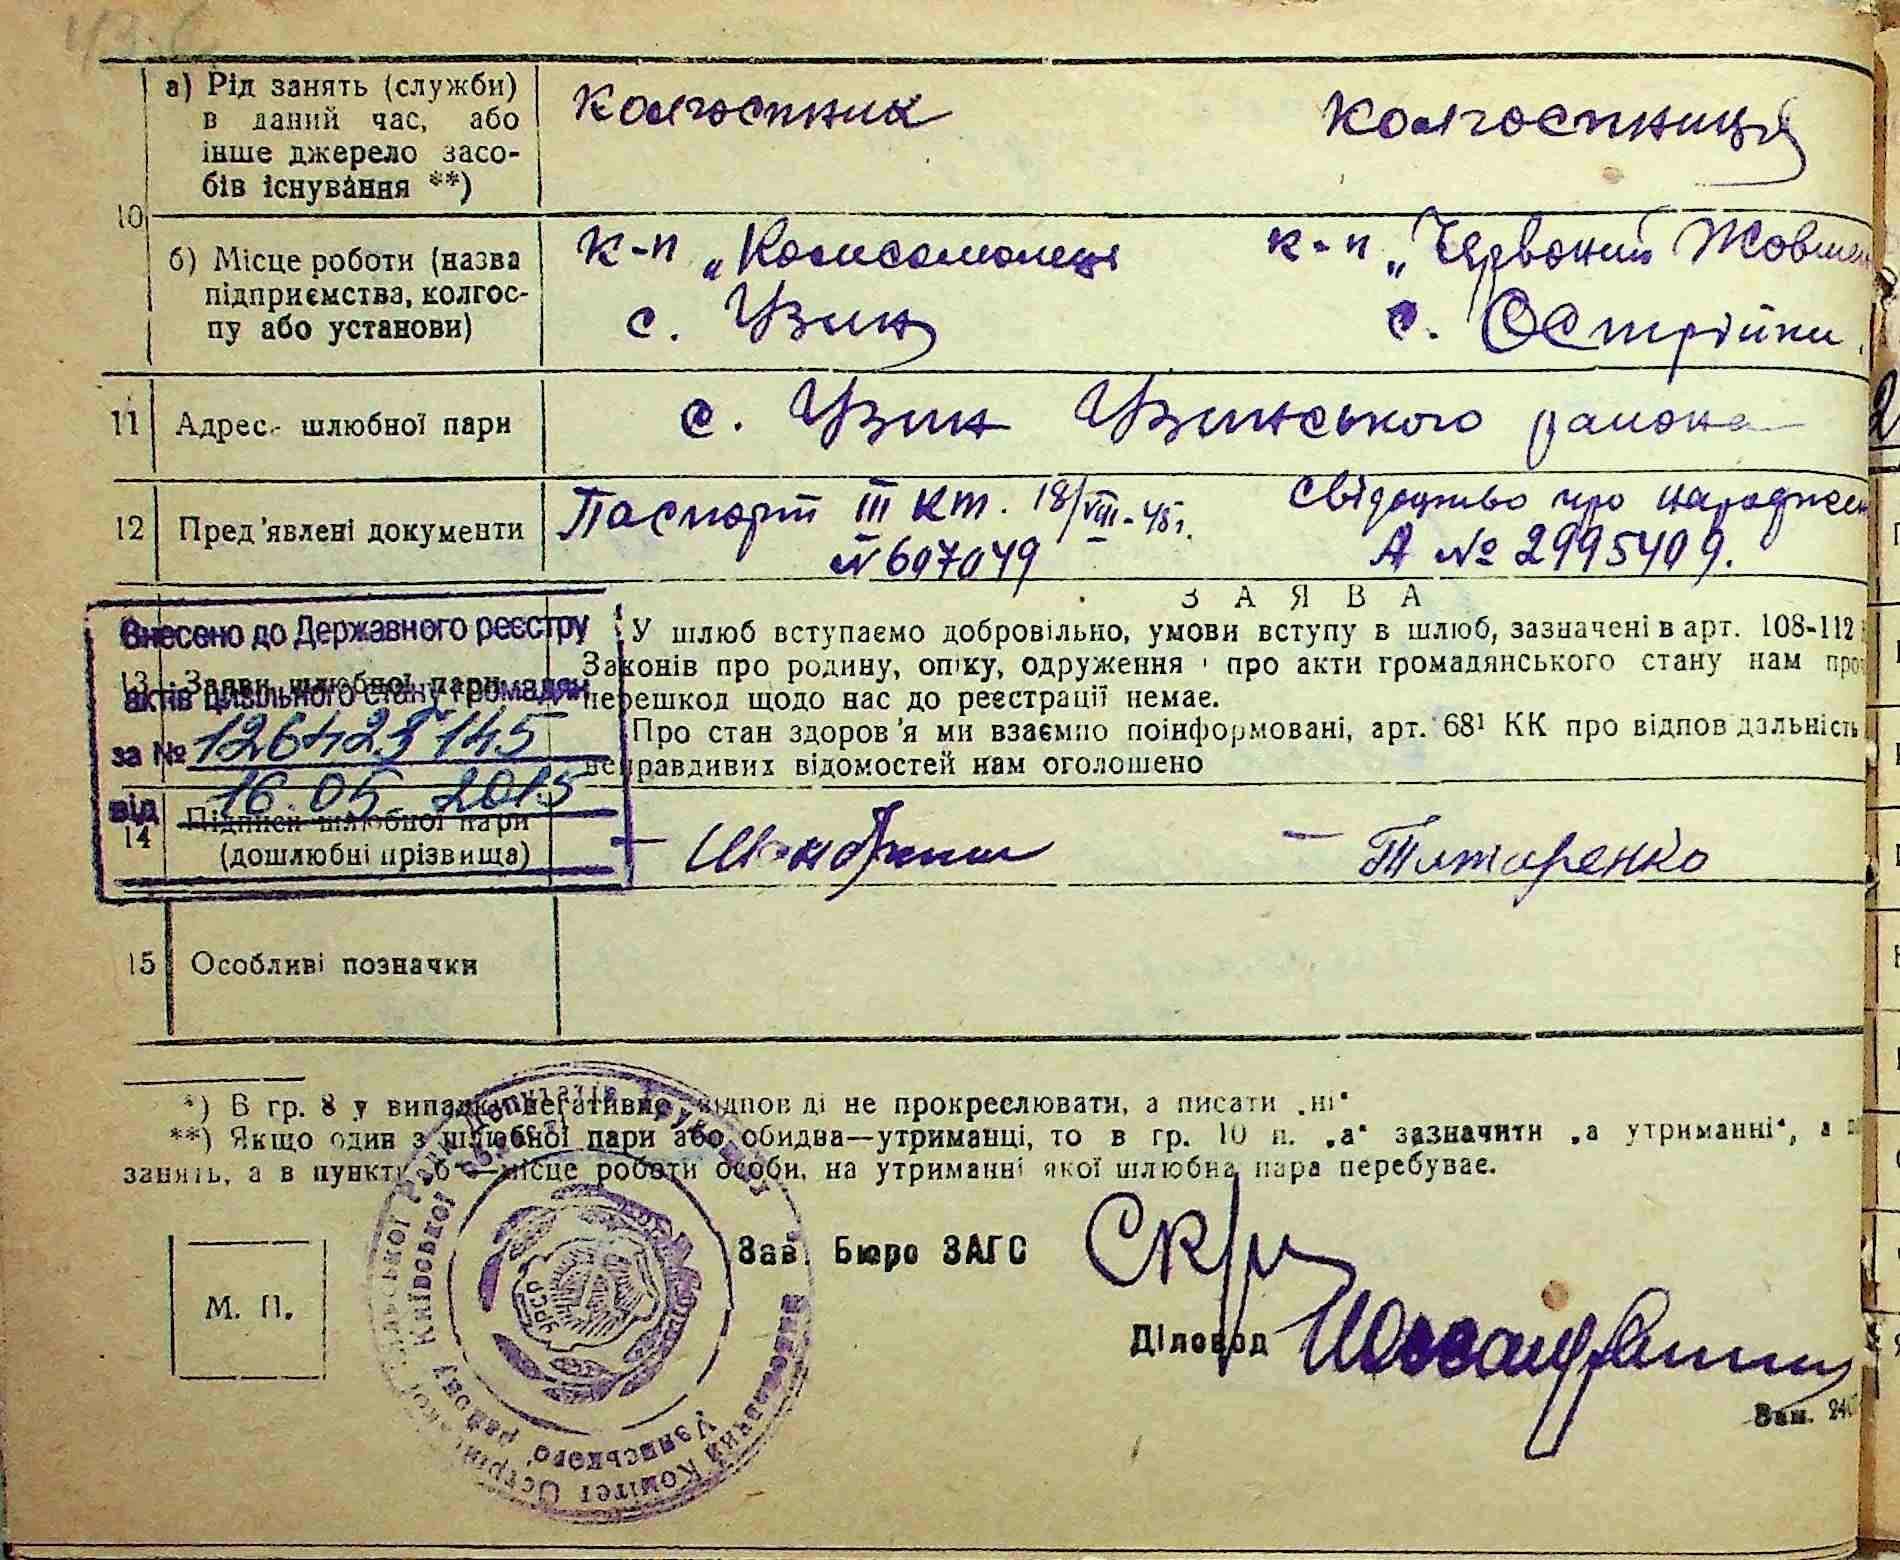 а) Рід занять (служби) в даний час, або інше джерело засобів існування **)
колгоспник
колгоспниця
10
б) Місце роботи (назва підприємства, колгоспу або установи)
к-п „Комсомолець
с. Узин
к-п „Червоний Жовтен
с. Острійки.
11 Адрес шлюбної пари
с. Узин Узинського района
12 Пред'явлені документи
Паспорт III кт. 18/VIII-45г.
№ 607049
свідоцтво про народжен
А № 2995409.
Внесено до Державного реєстру
актів цивільного стану громадян
за № 126423145
від 16.05.2015
13 Заяви шлюбної пари
З А Я В А
У шлюб вступаємо добровільно, умови вступу в шлюб, зазначені в арт. 108-112
Законів про родину, опіку, одруження і про акти громадянського стану нам про
перешкод щодо нас до реєстрації немає.
Про стан здоров'я ми взаємно поінформовані, арт. 68¹ КК про відповідальність
неправдивих відомостей нам оголошено
14 Підписи шлюбної пари
(дошлюбні прізвища)
Титаренко
15 Особливі позначки
*) В гр. 8 у випадку негативної відповіді не прокреслювати, а писати „ні“
**) Якщо один з шлюбної пари або обидва—утриманці, то в гр. 10 п. „а“ зазначити „а утриманні“, а
занять, а в пункті „б“—місце роботи особи, на утриманні якої шлюбна пара перебуває.
М. П.
Виконавчий Комітет Острійківської Сільської Ради Депутатів Трудящих
Узинського району Київської області
УРСР
Зав. Бюро ЗАГС
Діловод
Зам. 240